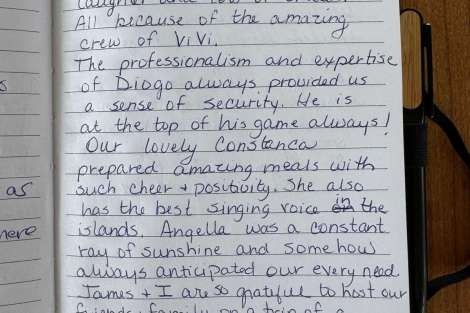 laughter and
All because of the amazing
crew of ViVi.
The professionalism and expertise
of Diogo always provided us
a sense of security. He is
at the top of his game always!
Our lovely Constanca
prepared amazing meals with
such cheer + positivity. She also
has the best singing voice in the
islands. Angella was a constant
ray of sunshine and somehow
always anticipated our every need.
James + I are so grateful to host our
friends + family on a trip of a
as
here